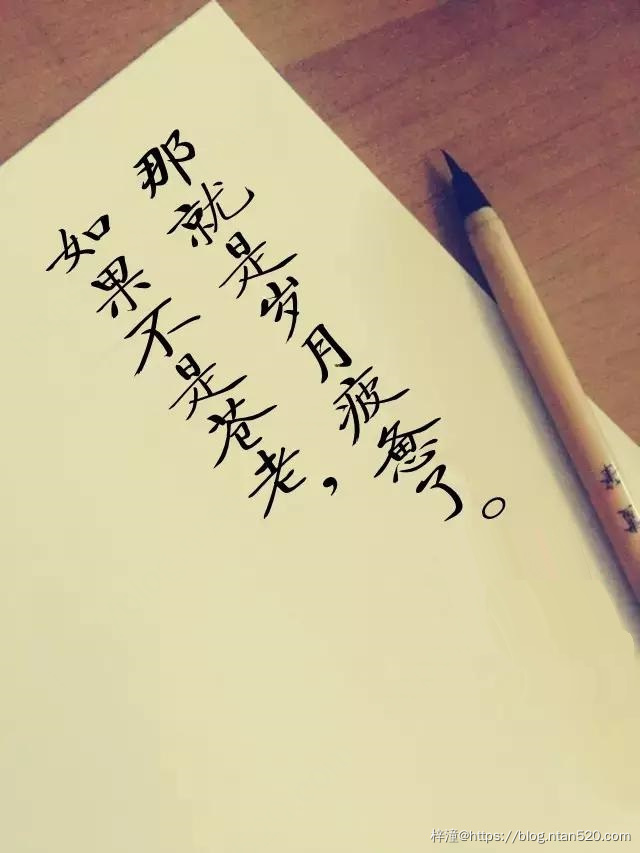 如果不是苍老，
那就是岁月疲惫了。
梓潼@https://blog.ntan520.com